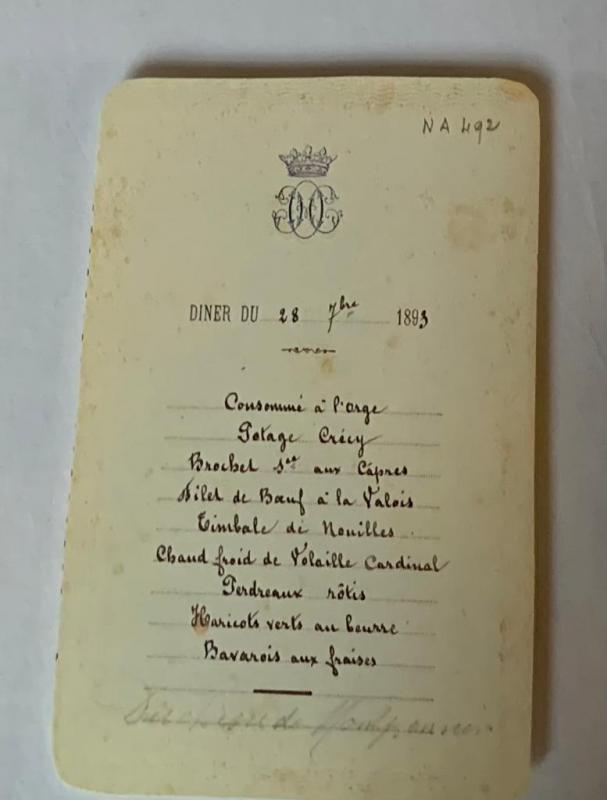 NA 492
DINER DU 28 7bre 1893
Consommé à l'orge
Potage Crécy
Brochet sce aux Câpres
Filet de Bœuf à la Valois
Timbale de Nouilles
Chaud froid de Volaille Cardinal
Perdreaux rôtis
Haricots verts au beurre
Bavarois aux fraises
de